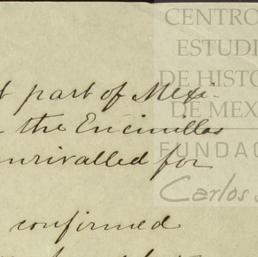 CENTRO
ESTUDI
DE HISTO
DE MEXI
FUNDAC
Carlos S
t part of Mexi-
the Encinillas
unrivalled for
confirmed